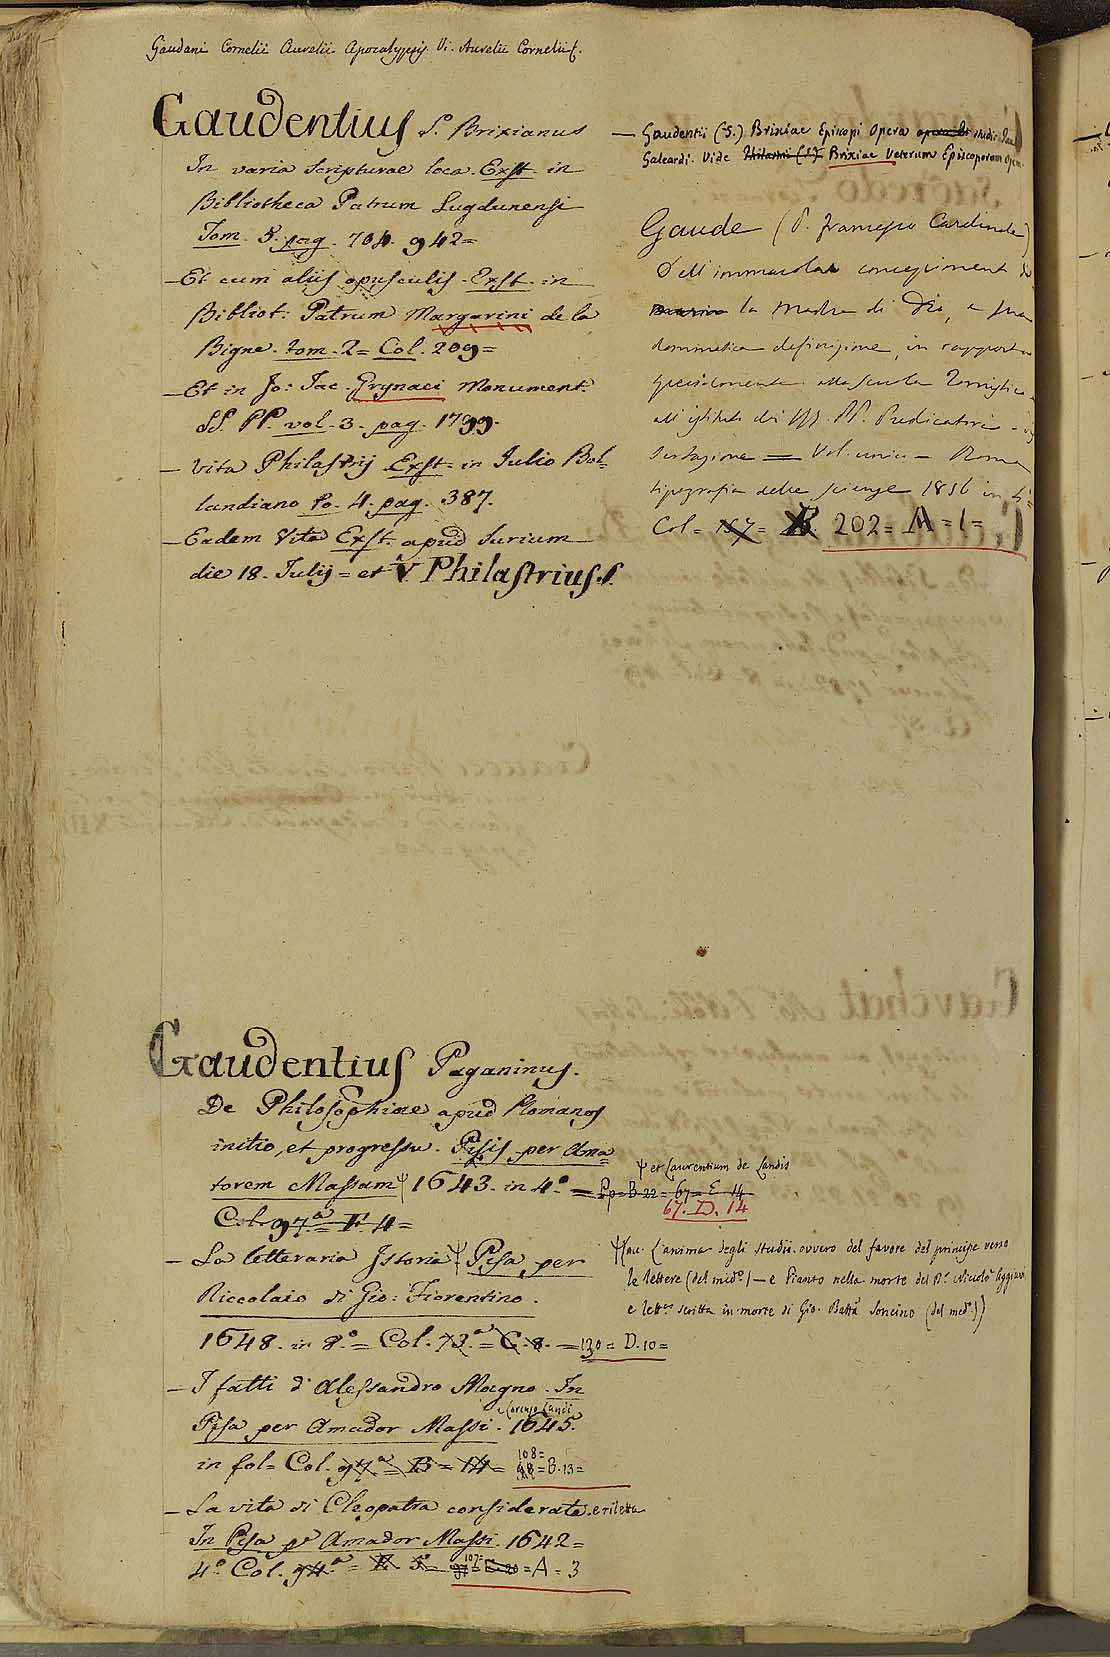 Gaudani Cornelii Aurelii Apocalypsis Vi. Aurelii Cornelii
Gaudentius S. Brixianus
In varia Scripturae loca. Exst. in
Bibliotheca Patrum Lugdunensi
Tom. 5. pag. 704. 942=
— Et cum aliis opusculis. Exst. in
Bibliot: Patrum Margarini de la
Bigne. tom. 2= Col. 209=
— Et in Jo: Jac. Grynaei Monument.
SS. PP. vol. 3. pag. 1799.
— Vita Philastrij Exst. in Julio Bol-
landiano to. 4. pag. 387.
— Eadem Vita Exst. apud Surium
die 18. Julij = et V. Philastrius. S.
— Gaudentii (S.) Brixiae Episcopi Opera studio
Galeardi. Vide Philastrii (S.) Brixiae Veterum Episcoporum
Gaude (P. Francesco Cardinale)
Dell'immacolato concepimento
la Madre di Dio, e sua
dommatica definizione, in rapporto
specialmente alla scuola Tomistica
all'istituto dei PP. Predicatori
Vol. unico — Roma
tipografia delle scienze 1856 in 4°=
Col= 157= B. 202= A=1=
Gaudentius Paganinus.
De Philosophiae apud Romanos
initio, et progressu. Pisis per Ama
torem Massam Ψ 1643. in 4.° =
Ψ et Laurentium de Landis
B 22= 67= E 14
67. D. 14
Col. 97.ª= F. 4=
— La letteraria Istoria Ψ Pisa per
Riccolaio di Gio: Fiorentino.
1648. in 8.°= Col. 73.ª= C. 8. =130= D.10=
Ψ L'anima degli studii ovvero del favore del principe verso
le lettere (del med.°) — e Pianto nella morte del Niccolò
e lett.ª scritta in morte di Gio. Batta Soncino (del med.°)
— I fatti d'Alessandro Magno. In
Lorenzo Landi
Pisa per Amador Massi. 1645.
in fol= Col. 97.ª= B= 14=
108=
98=B.13=
— La vita di Cleopatra considerata. e riletta
In Pisa pr Amador Massi. 1642=
4.° Col. 94.ª= E. 5= 107= =A=3